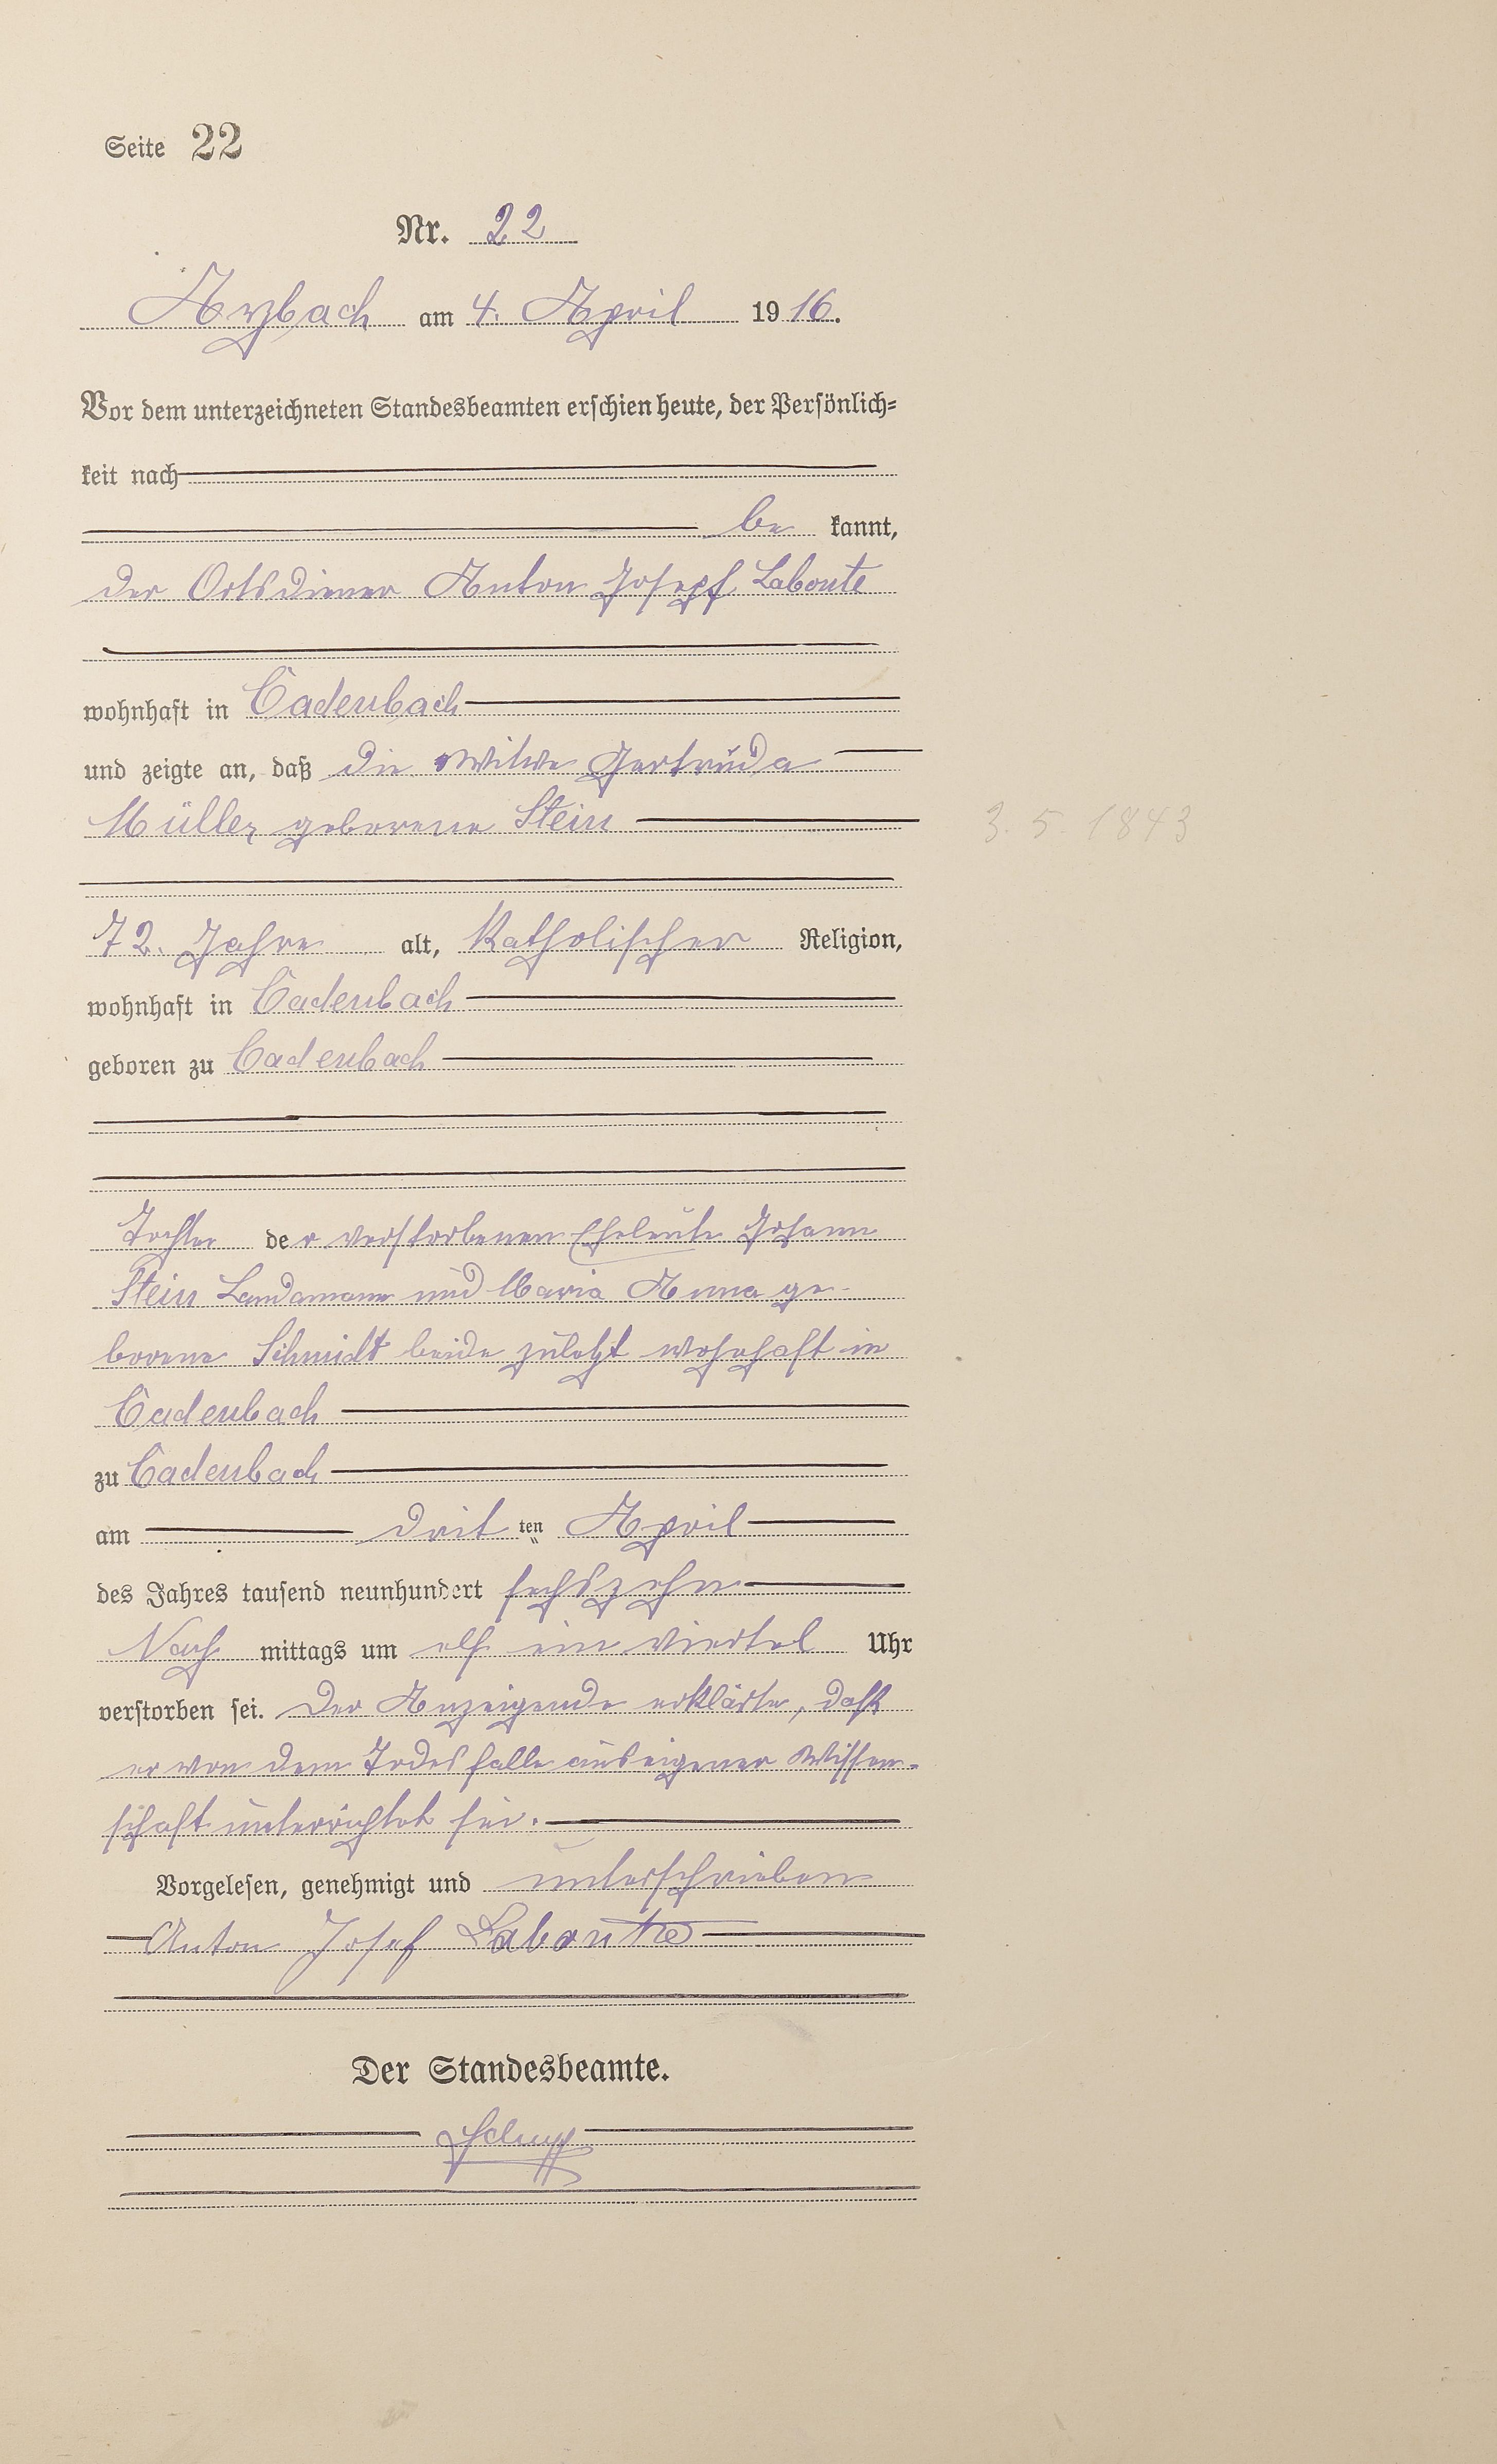 Seite 22
Nr. 22
Arzbach am 4. April 1916.
Vor dem unterzeichneten Standesbeamten erschien heute, der Persönlich=
keit nach
be kannt,
der Ortsdiener Anton Josepf Labonte
wohnhaft in Cadenbach
und zeigte an, daß die Witwe Gertruda
Müller geborene Stein
3. 5. 1843
72. Jahre alt, Katholischer Religion,
wohnhaft in Cadenbach
geboren zu Cadenbach
Tochter der verstorbenen Eheleute Johann
Stein Landamann und Maria Anna ge-
borene Schmidt beide zuletzt wohnhaft in
Cadenbach
zu Cadenbach
am drit ten April
des Jahres tausend neunhundert sechszehn
Nach mittags um elf ein viertel Uhr
verstorben sei. Der Anzeigende erklärte, daß
er von dem Todesfalle aus eigener Wissen-
schaft unterrichtet sei.
Vorgelesen, genehmigt und unterschrieben
Anton Josef Labonte
Der Standesbeamte.